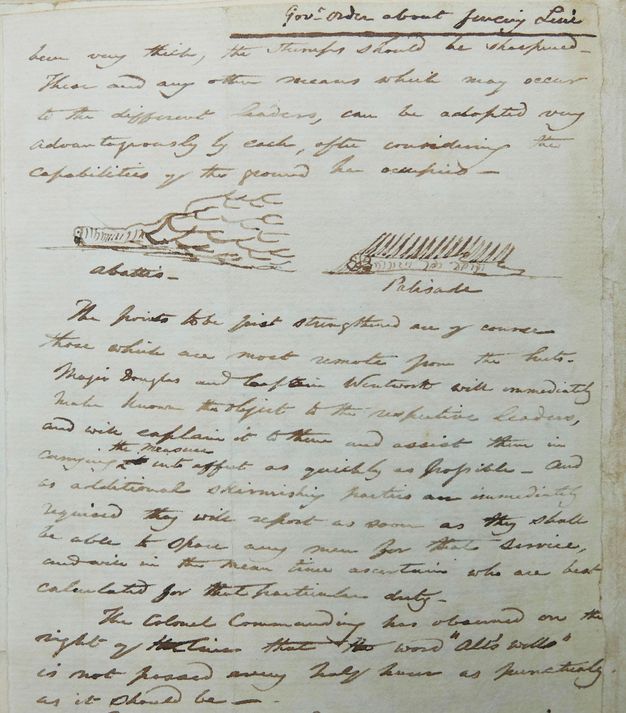 Govr. order about fencing Line
been very thick, the stumps should be sharpened –
These and any other means which may occur
to the different leaders, can be adopted very
advantageously by each, after considering the
capabilities of the ground he occupies –
abattis –
Palisade
The points to be first strengthened are of course
those which are most remote from the huts.
Major Douglas and Captain Wentworth will immediately
make known the object to the respective leaders,
and will explain it to them and assist them in
the measure
carrying into effect as quickly as possible – and
as additional skirmishing parties are immediately
required they will report as soon as they shall
be able to spare any men for that service,
and will in the mean time ascertain who are best
calculated for that particular duty –
The Colonel Commanding has observed on the
right of lines that the word "All's well"
is not passed every half hour as punctually
as it should be –